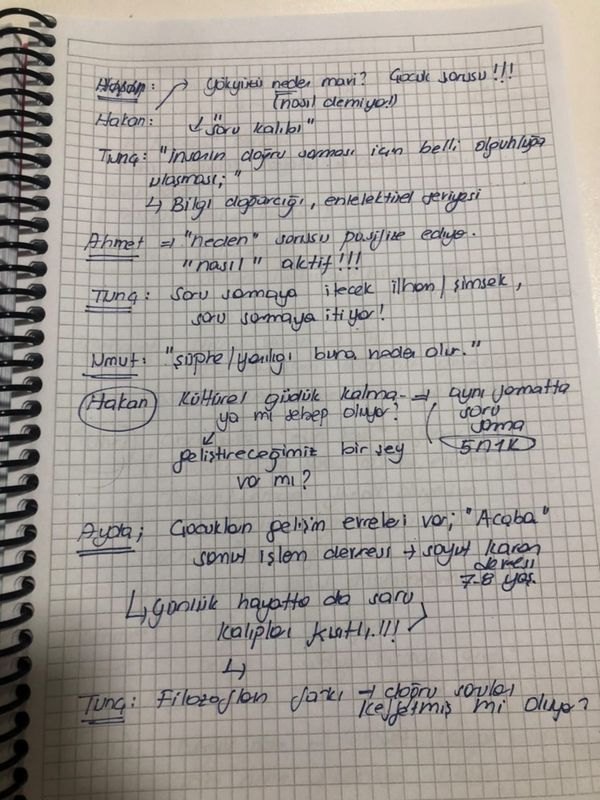 Hakan: → Gökyüzü neden mavi? Çocuk sorusu!!!
(nasıl demiyo!)
Hakan: ↳ "soru kalıbı"
Tunç: "insanın doğru sorması için belli olgunluğa
ulaşması;"
↳ Bilgi dağarcığı, entelektüel seviyesi
Ahmet ⇒ "neden" sorusu pasifize ediyo.
"nasıl" aktif!!!
Tunç: Soru sormaya itecek ilham/şimşek,
soru sormaya itiyor!
Umut: "şüphe/yanılgı buna neden olur."
Hakan Kültürel güdük kalma- ⇒ aynı formatta
ya mı sebep oluyor? soru
sorma
geliştireceğimiz bir şey 5N1K
var mı?
Ayda; Çocukları gelişim evreleri var; "Acaba"
somut işlem devresi → soyut
devresi
7-8 yaş.
↳ Günlük hayatta da soru
kalıpları kısıtlı.!!!
↳
Tunç: Filozofları farkı → doğru soruları
keşfetmiş mi oluyor?